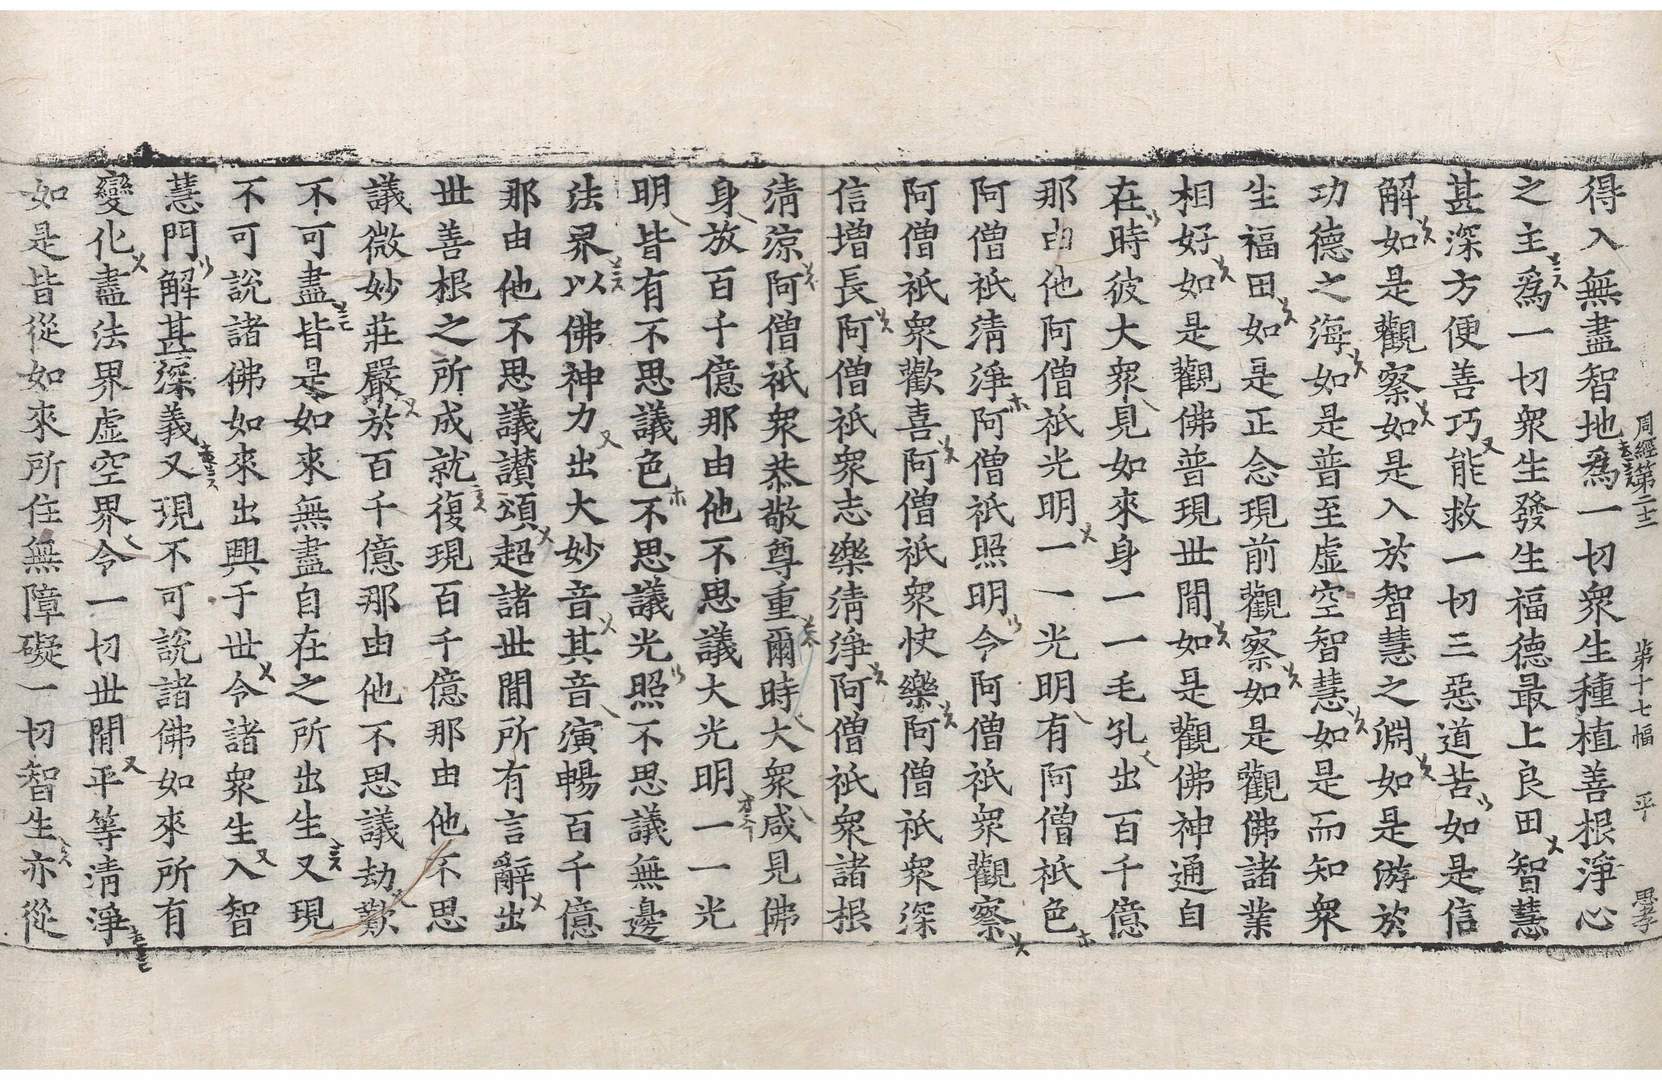 周經第二十三　第十七幅　平　思孝
得入無盡智地爲一切衆生種植善根淨心
之主爲一切衆生發生福德最上良田智慧
甚深方便善巧能救一切三惡道苦如是信
解如是觀察如是入於智慧之淵如是游於
功德之海如是普至虛空智慧如是而知衆
生福田如是正念現前觀察如是觀佛諸業
相好如是觀佛普現世閒如是觀佛神通自
在時彼大衆見如來身一一毛孔出百千億
那由他阿僧祇光明一一光明有阿僧祇色
阿僧祇淸淨阿僧祇照明令阿僧祇衆觀察
阿僧祇衆歡喜阿僧祇衆快樂阿僧祇衆深
信增長阿僧祇衆志樂淸淨阿僧祇衆諸根
淸涼阿僧祇衆恭敬尊重爾時大衆咸見佛
身放百千億那由他不思議大光明一一光
明皆有不思議色不思議光照不思議無邊
法界以佛神力出大妙音其音演暢百千億
那由他不思議讃頌超諸世閒所有言辭出
世善根之所成就復現百千億那由他不思
議微妙莊嚴於百千億那由他不思議劫歎
不可盡皆是如來無盡自在之所出生又現
不可說諸佛如來出興于世令諸衆生入智
慧門解甚深義又現不可說諸佛如來所有
變化盡法界虛空界令一切世閒平等淸淨
如是皆從如來所住無障礙一切智生亦從